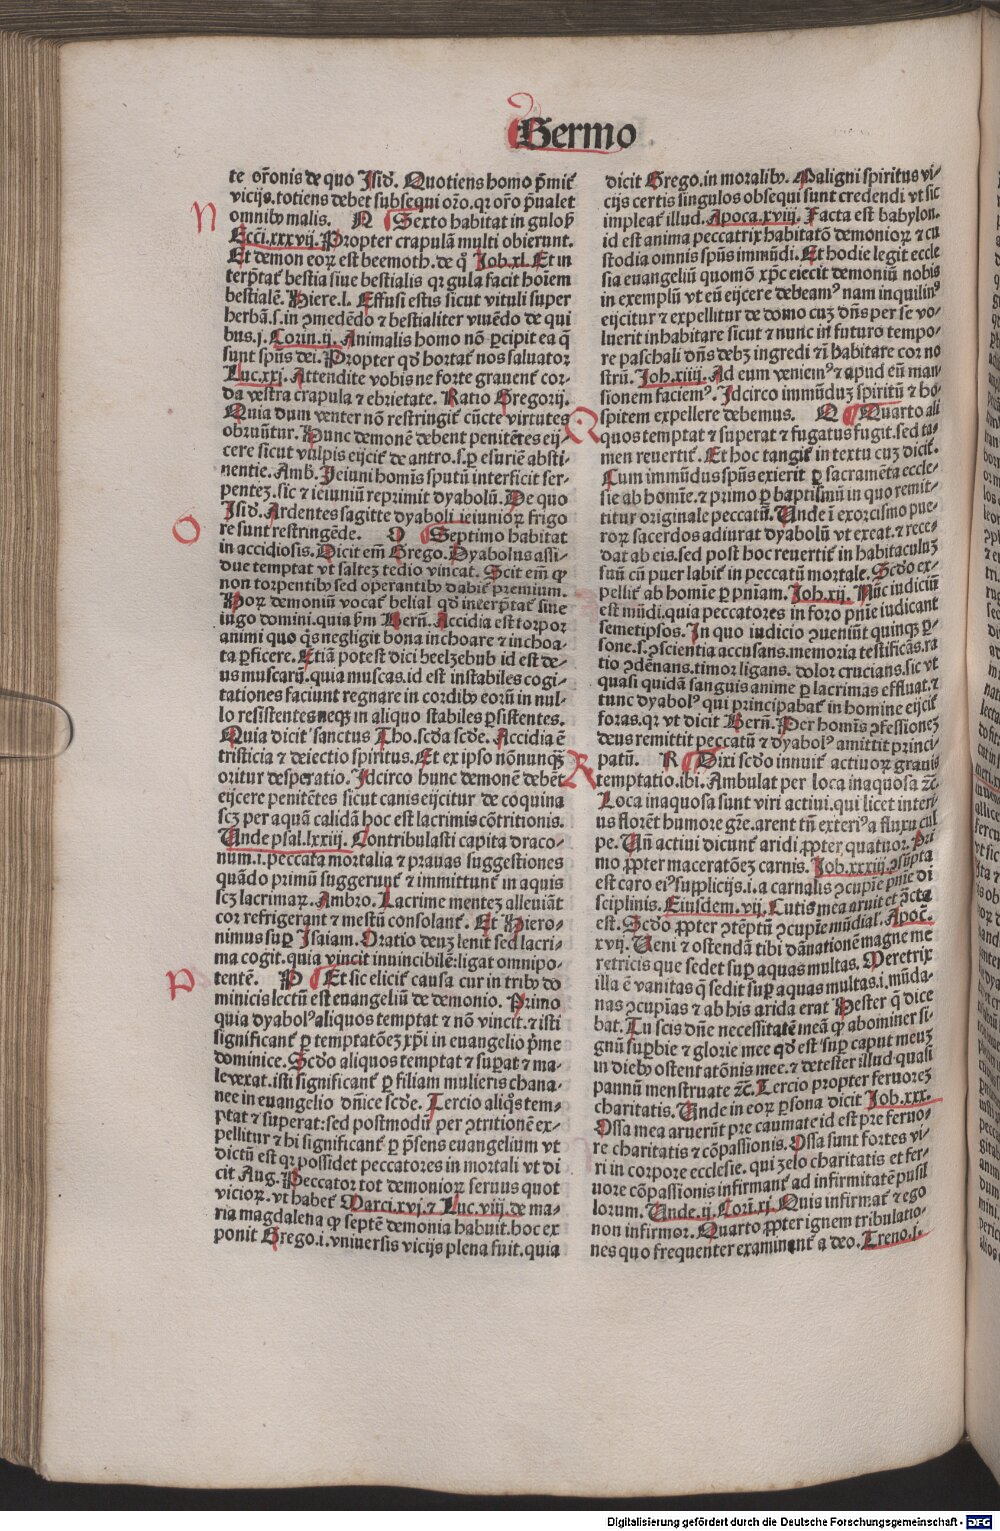 Sermo
te or̄onis de quo Isid. Quotiens homo p̄mit᷑
vicijs.totiens debet subsequi or̄o.qr or̄o p̄ualet
omnibꝰ malis. N Sexto habitat in gulosꝭ
Ecc̄i.xxxvij. Propter crapulā multi obierunt.
Et demon eoꝝ est beemoth.de q̄ Job.xl. Et in
terp̄tat᷑ bestia siue bestialis qr gula facit hoīem
bestialē. Hiere.l. Effusi estis sicut vituli super
herbā.s.in ꝯmedēdo ⁊ bestialiter viuēdo de qui
bus.j. Corin.ij. Animalis homo nō ꝑcipit ea q̄
sunt spūs dei. Propter qd hortat᷑ nos saluator
Luc.xxj. Attendite vobis ne forte grauent᷑ cor-
da vestra crapula ⁊ ebrietate. Ratio Gregorij.
Quia dum venter nō restringit᷑ cūcte virtutes
obruūtur. Hunc demonē debent penitētes eij-
cere sicut vulpis eijcit᷑ de antro.s.ꝑ esuriē absti-
nentie. Amb. Ieiuni homīs sputū interficit ser-
pentez.sic ⁊ ieiuniū reprimit dyabolū. De quo
Isid. Ardentes sagitte dyaboli ieiunioꝝ frigo
re sunt restringēde. O Septimo habitat
in accidiosis. Dicit em̄ Grego. Dyabolus assi-
due temptat vt saltez tedio vincat. Scit em̄ ꝙ
non torpentibꝰ sed operantibꝰ dabit᷑ premium.
Hoꝝ demoniū vocat᷑ belial qd interp̄tat᷑ sine
iugo domini.quia ẜm Bern̄. Accidia est torpor
animi quo q̄s negligit bona inchoare ⁊ inchoa-
ta ꝑficere. Etiā potest dici beelzebub id est de-
us muscarū.quia muscas.id est instabiles cogi-
tationes faciunt regnare in cordibꝰ eorū in nul-
lo resistentes neqꝫ in aliquo stabiles ꝑsistentes.
Quia dicit sanctus Tho.scd̄a scd̄e. Accidia ē
tristicia ⁊ deiectio spiritus. Et ex ipso nōnunqꝫ
oritur desperatio. Idcirco hunc demonē debēt
eijcere penitētes sicut canis eijcitur de coquina
scꝫ per aquā calidā hoc est lacrimis cōtritionis.
Unde psal.lxxiij. Contribulasti capita draco-
num.i.peccata mortalia ⁊ prauas suggestiones
quādo primū suggerunt᷑ ⁊ immittunt᷑ in aquis
scꝫ lacrimaꝝ. Ambro. Lacrime mentez alleuiāt
cor refrigerant ⁊ mestū consolant᷑. Et Hiero-
nimus suꝑ Isaiam. Oratio deuꝫ lenit sed lacri-
ma cogit.quia vincit inuincibilē:ligat omnipo-
tentē. P Et sic elicit᷑ causa cur in tribꝰ do
minicis lectū est euangeliū de demonio. Primo
quia dyabolꝰ aliquos temptat ⁊ nō vincit.⁊ isti
significant᷑ ꝑ temptatōeꝫ xp̄i in euangelio p̄me
dominice. Scd̄o aliquos temptat ⁊ suꝑat ⁊ ma-
le vexat.isti significant᷑ ꝑ filiam mulieris chana-
nee in euangelio dn̄ice scd̄e. Tercio aliq̄s tem-
ptat ⁊ superat:sed postmodū per ꝯtritionē ex-
pellitur ⁊ hi significant᷑ ꝑ p̄sens euangelium vt
dictū est qr possidet peccatores in mortali vt di
cit Aug. Peccator tot demonioꝝ seruus quot
vicioꝝ.vt habet᷑ Marci.xvj.⁊ Luc.viij.de ma-
ria magdalena ꝙ septē demonia habuit.hoc ex
ponit Grego.i.vniuersis vicijs plena fuit.quia
dicit Grego.in moralibꝰ. Maligni spiritus vi-
cijs certis singulos obsequi sunt credendi vt sic
impleat᷑ illud. Apoca.xviij. Facta est babylon.
id est anima peccatrix habitatō demonioꝝ ⁊ cu
stodia omnis spūs immūdi. Et hodie legit᷑ eccle
sia euangeliū quomō xp̄c eiecit demoniū nobis
in exemplū vt eū eijcere debeamꝰ nam inquilinꝰ
eijcitur ⁊ expellitur de domo cuꝫ dn̄s per se vo-
luerit inhabitare sicut ⁊ nunc in futuro tempo-
re paschali dn̄s debꝫ ingredi ⁊ īhabitare cor no
strū. Joh.xiiij. Ad eum veniemꝰ ⁊ apud eū man
sionem faciemꝰ. Idcirco immūduꝫ spiritū ⁊ ho-
spitem expellere debemus. Q Quarto ali
quos temptat ⁊ superat ⁊ fugatus fugit.sed ta-
men reuertit᷑. Et hoc tangit᷑ in textu cuꝫ dicit᷑.
Cum immūdus spūs exierit ꝑ sacramēta eccle-
sie ab homīe.⁊ primo ꝑ baptismū in quo remit-
titur originale peccatū. Unde ī exorcismo pue-
roꝝ sacerdos adiurat dyabolū vt exeat.⁊ rece-
dat ab eis.sed post hoc reuertit᷑ in habitaculuꝫ
suū cū puer labit᷑ in peccatū mortale. Scd̄o ex-
pellit᷑ ab homīe ꝑ pn̄iam. Joh.xij. Nūc iudiciū
est mūdi.quia peccatores in foro pn̄ie iudicant
semetipsos. In quo iudicio ꝯueniūt quinqꝫ ꝑ-
sone.s.ꝯscientia accusans.memoria testificās.ra
tio ꝯdēnans.timor ligans. dolor crucians.sic vt
quasi quidā sanguis anime ꝑ lacrimas effluat.⁊
tunc dyabolꝰ qui principabat᷑ in homine eijcit᷑
foras.qr vt dicit Bern̄. Per homīs ꝯfessioneꝫ
deus remittit peccatū ⁊ dyabolꝰ amittit princi
patū. R Dixi scd̄o innuit᷑ actiuoꝝ grauis
temptatio.ibi. Ambulat per loca inaquosa ⁊c̄.
Loca inaquosa sunt viri actiui.qui licet interi
us florēt humore gr̄e.arent tn̄ exteriꝰ a fluxu cul
pe. Un̄ actiui dicunt᷑ aridi ꝓpter quatuor. Pri
mo ꝓpter maceratōeꝫ carnis. Job.xxxiij. ꝯsūpta
est caro eiꝰ supplicijs.i.a carnalis ꝯcupīe pn̄ie di
sciplinis. Eiusdem.vij. Cutis mea aruit et ꝯtcta
est. Scd̄o ꝓpter ꝯtēptū ꝯcupīe mūdial᷑. Apoc᷑.
xvij. Ueni ⁊ ostendā tibi dānationē magne me
retricis que sedet suꝑ aquas multas. Meretrix
illa ē vanitas q̄ sedit suꝑ aquas multas.i.mūda-
nas ꝯcupīas ⁊ ab his arida erat Hester q̄ dice
bat. Tu scis dn̄e necessitatē meā ꝙ abominer si-
gnū suꝑbie ⁊ glorie mee qd est suꝑ caput meuꝫ
in diebꝰ ostentatōnis mee.⁊ detester illud quasi
pannū menstruate ⁊c̄. Tercio propter feruoreꝫ
charitatis. Unde in eoꝝ ꝑsona dicit Job.xxx.
Ossa mea aruerūt pre caumate id est pre feruo-
re charitatis ⁊ cōpassionis. Ossa sunt fortes vi-
ri in corpore ecclesie. qui zelo charitatis et fer-
uore cōpassionis infirmant᷑ ad infirmitatē pusil
lorum. Unde.ij. Corī.xj. Quis infirmat᷑ ⁊ ego
non infirmor. Quarto ꝓpter ignem tribulatio-
nes quo frequenter examinant᷑ a deo. Treno.j.
Digitalisierung gefördert durch die Deutsche Forschungsgemeinschaft - DFG